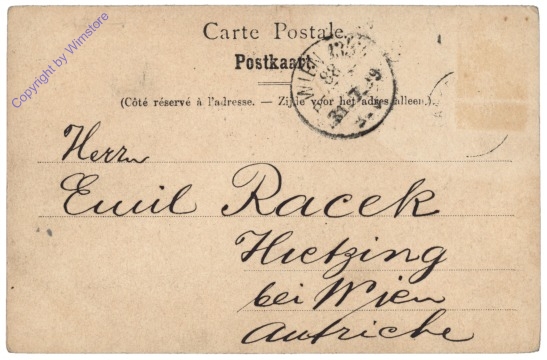 Copyright by Wimstore
Carte Postale.
Postkaart.
WIEN
(Côté réservé à l'adresse. — Zijde voor het adres alleen.)
Herrn
Emil Racek
Hietzing
bei Wien
Autriche